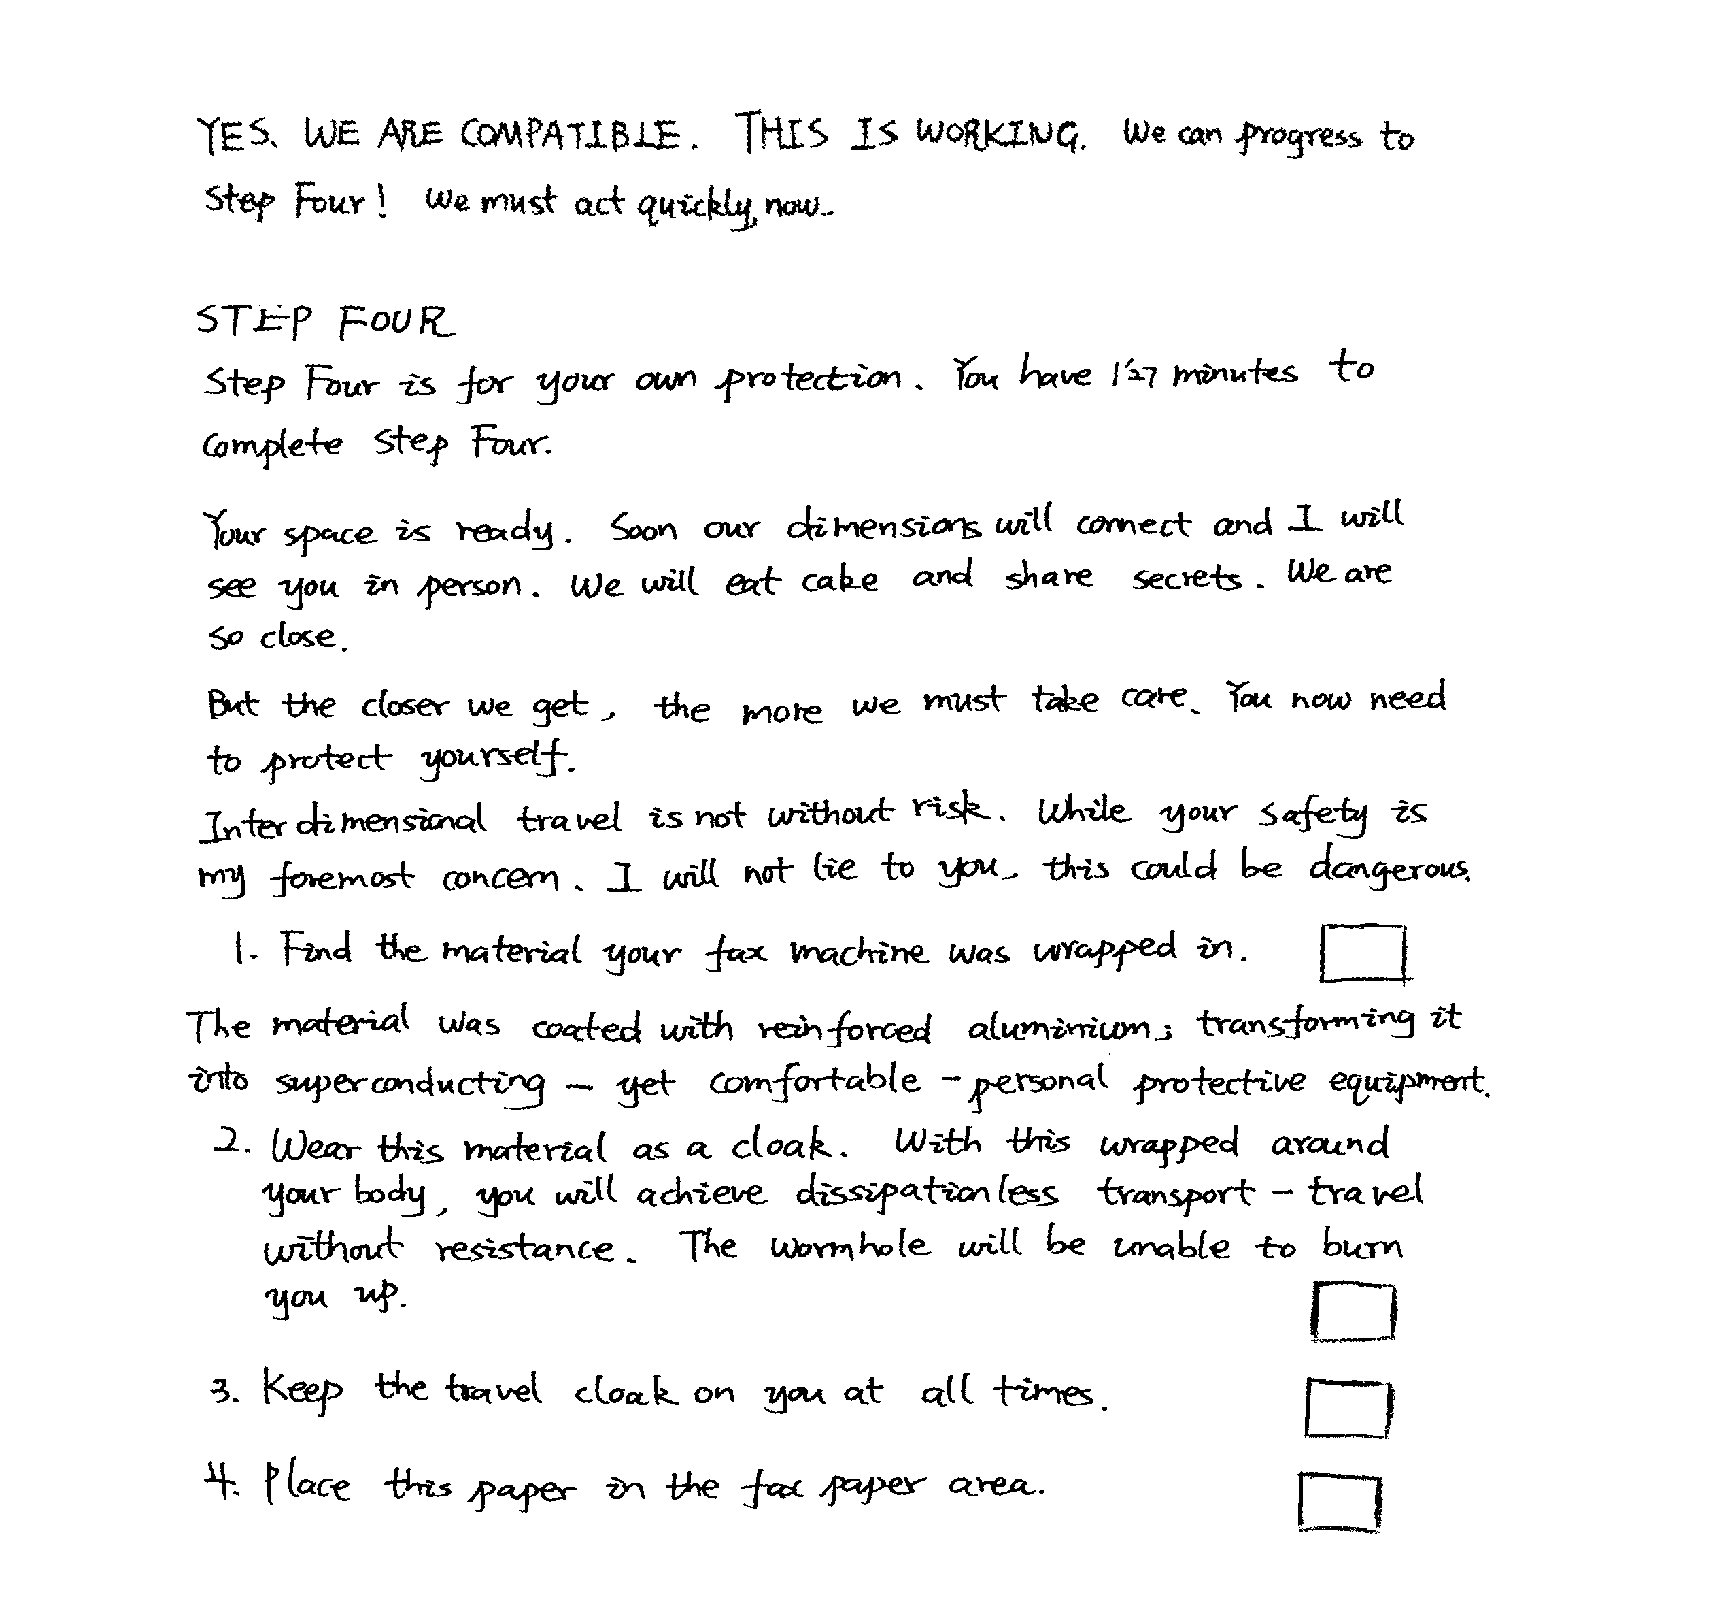 YES. WE ARE COMPATIBLE. THIS IS WORKING. We can progress to
Step Four! We must act quickly, now.
STEP FOUR
Step Four is for your own protection. You have 1'27 minutes to
complete Step Four.
Your space is ready. Soon our dimensions will connect and I will
see you in person. We will eat cake and share secrets. We are
so close.
But the closer we get, the more we must take care. You now need
to protect yourself.
Interdimensional travel is not without risk. While your safety is
my foremost concern. I will not lie to you, this could be dangerous.
1. Find the material your fax machine was wrapped in.
The material was coated with reinforced aluminium; transforming it
into superconducting - yet comfortable - personal protective equipment.
2. Wear this material as a cloak. With this wrapped around
your body, you will achieve dissipationless transport - travel
without resistance. The wormhole will be unable to burn
you up.
3. Keep the travel cloak on you at all times.
4. Place this paper in the fax paper area.